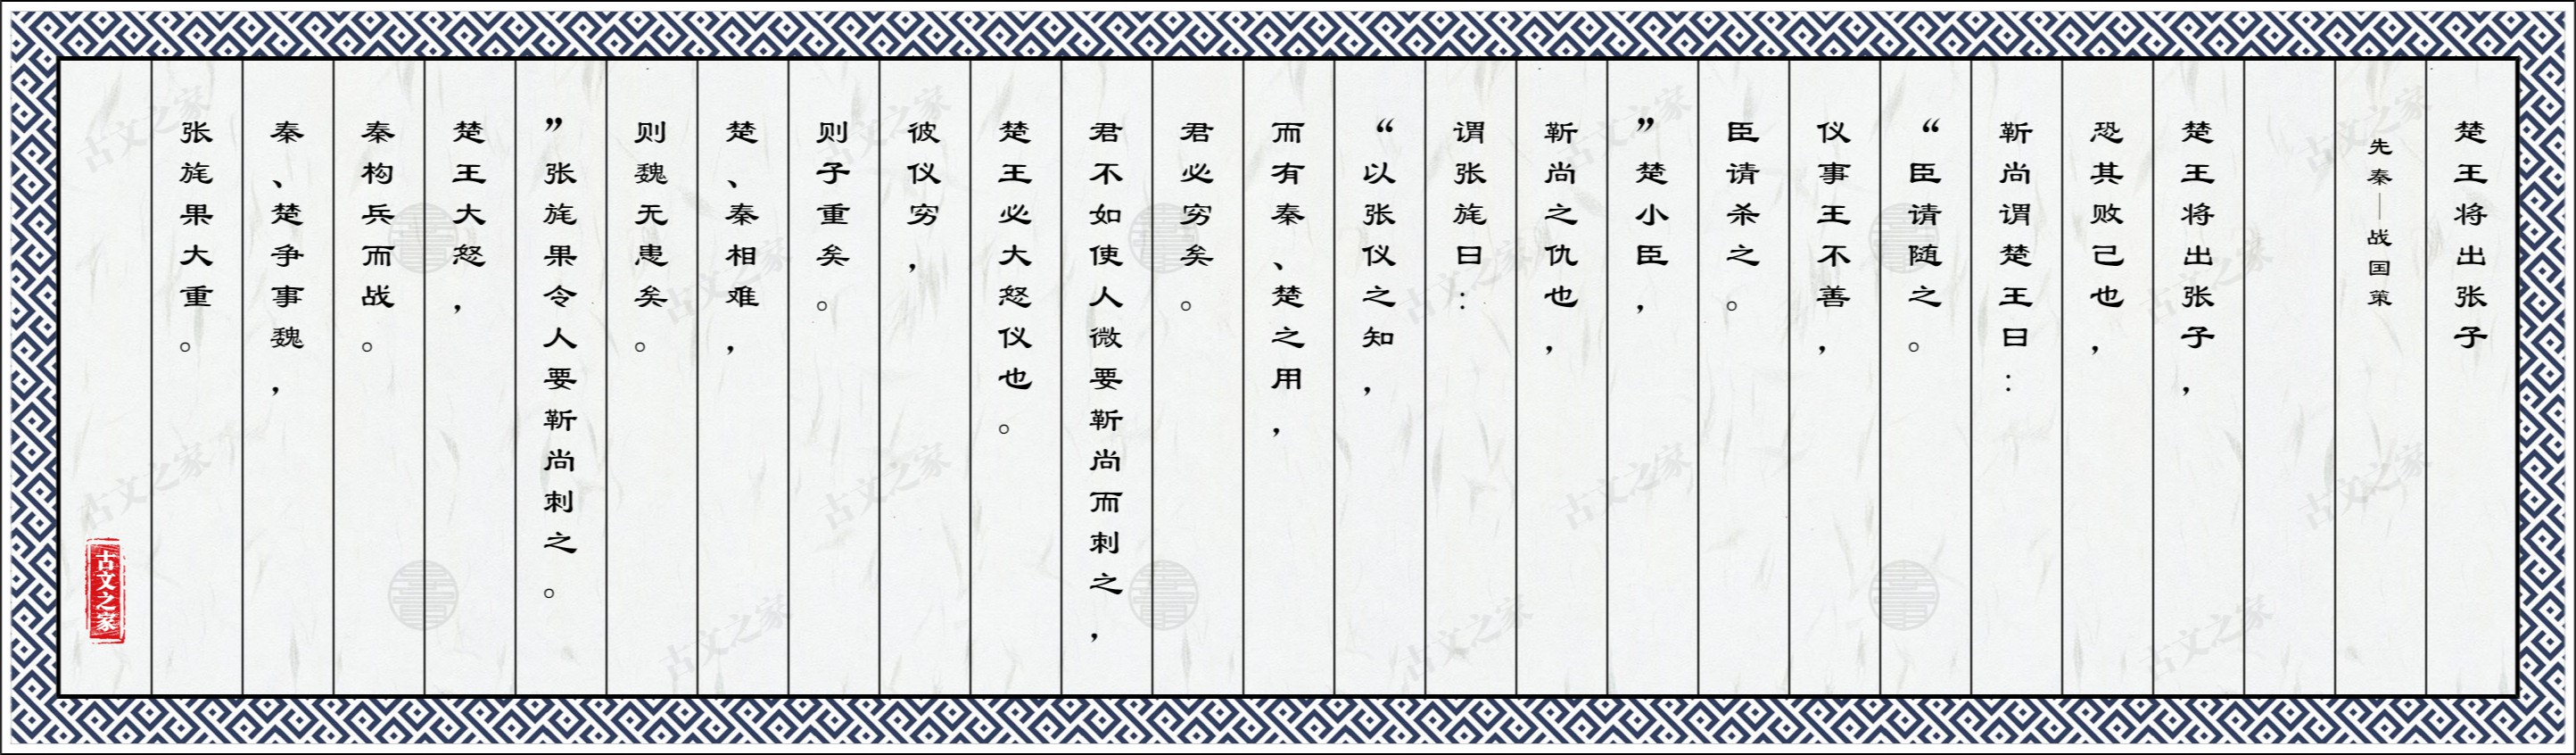 楚王将出张子
先秦—战国策
楚王将出张子，
恐其败己也，
靳尚谓楚王曰：
“臣请随之。
仪事王不善，
臣请杀之。
”楚小臣，
靳尚之仇也，
谓张旄曰：
“以张仪之知，
而有秦、楚之用，
君必穷矣。
君不如使人微要靳尚而刺之，
楚王必大怒仪也。
彼仪穷，
则子重矣。
楚、秦相难，
则魏无患矣。
”张旄果令人要靳尚刺之。
楚王大怒，
秦构兵而战。
秦、楚争事魏，
张旄果大重。
古文之家